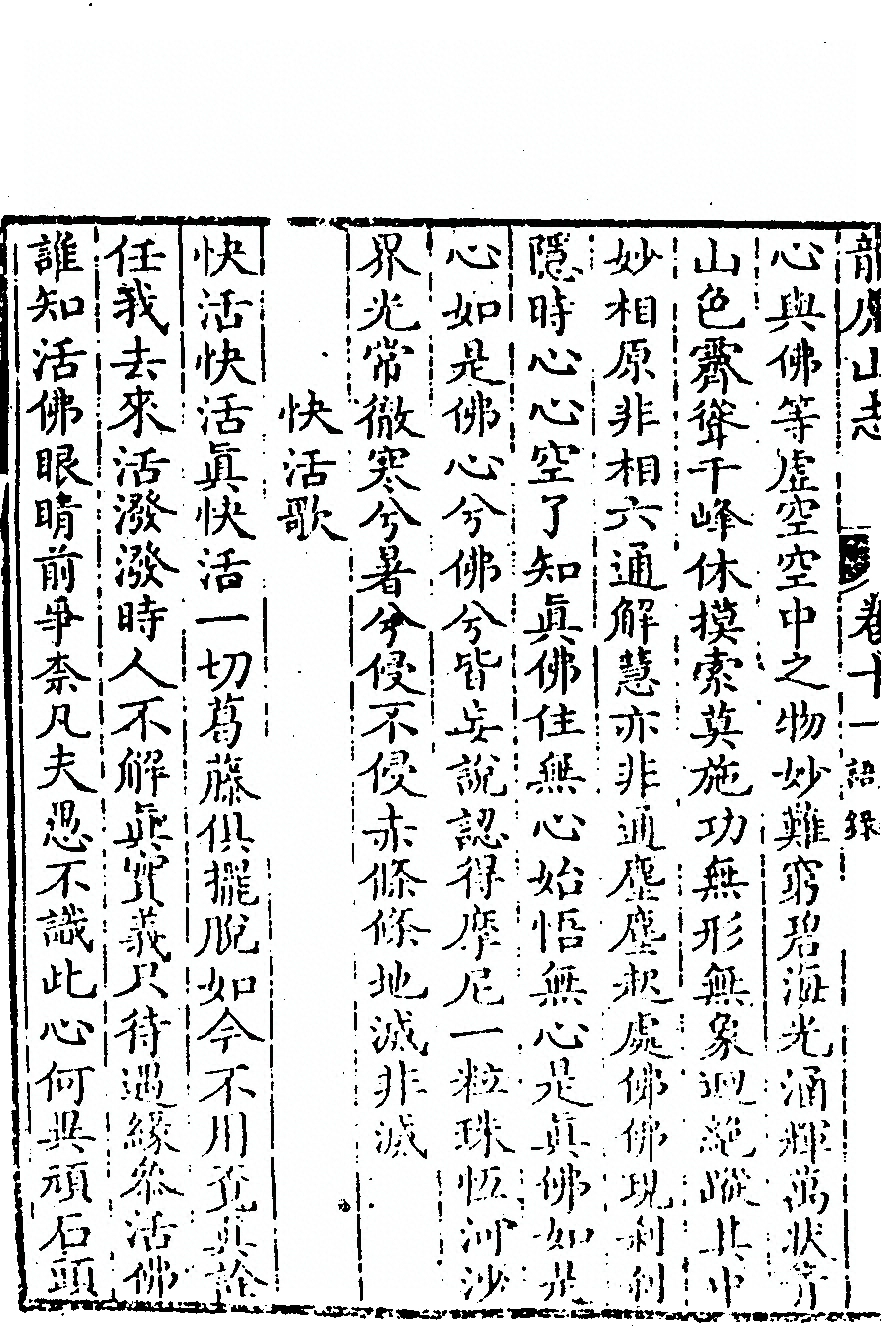 龍唐山志 卷十一 語錄
心與佛等虛空空中之物妙難窮碧海光涵輝萬狀芥
山色霽聳千峰休摸索莫施功無形無象迥絕蹤其中
妙相原非相六通解慧亦非通塵塵起處佛佛現剎剎
隱時心心空了知眞佛住無心始悟無心是眞佛如是
心如是佛心兮佛兮皆妄說認得摩尼一粒珠恆河沙
界光常徹寒兮暑兮侵不侵赤條條地滅非滅
快活歌
快活快活眞快活一切葛藤俱擺脫如今不用覓眞詮
任我去來活潑潑時人不解眞實義只待遇緣叅活佛
誰知活佛眼睛前爭柰凡夫愚不識此心何異頑石頭